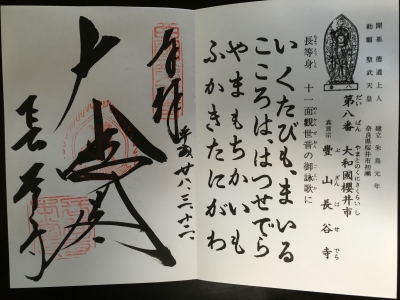 開基 徳道上人
勅願 聖武天皇
創立 朱鳥元年
奈良県桜井市初瀬
第八番 大和國櫻井市
だい ばん やまとのくにさくらいし
真言宗 豐山長谷寺
ぶ ざん は せ でら
長等身 十一面觀世音の御詠歌に
いくたびも、まいる
こころは、はつせでら
やまもちかいも
ふかきたにがわ
奉拝
平成廿八、三、十二
大悲閣
長谷寺